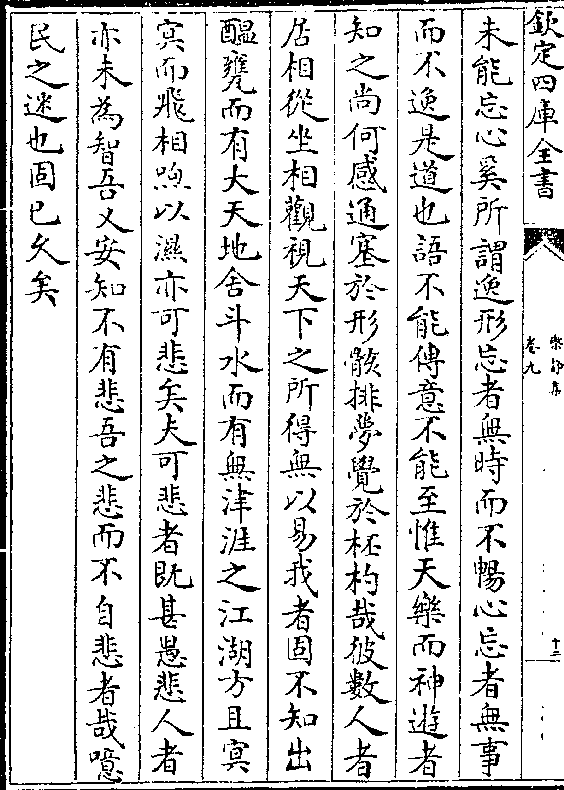 欽定四庫全書
卷九
未能忘心奚所謂逸形忘者無時而不暢心忘者無事
而不逸是道也語不能傳意不能至惟天樂而神遊者
知之尚何感通塞於形骸排夢覺於杯杓哉彼數人者
居相從坐相觀視天下之所得無以易我者固不知出
醯甕而有大天地舍斗水而有無津涯之江湖方且冥
冥而飛相喣以濕亦可悲矣夫可悲者既甚愚悲人者
亦未為智吾又安知不有悲吾之悲而不自悲者哉噫
民之迷也固已久矣